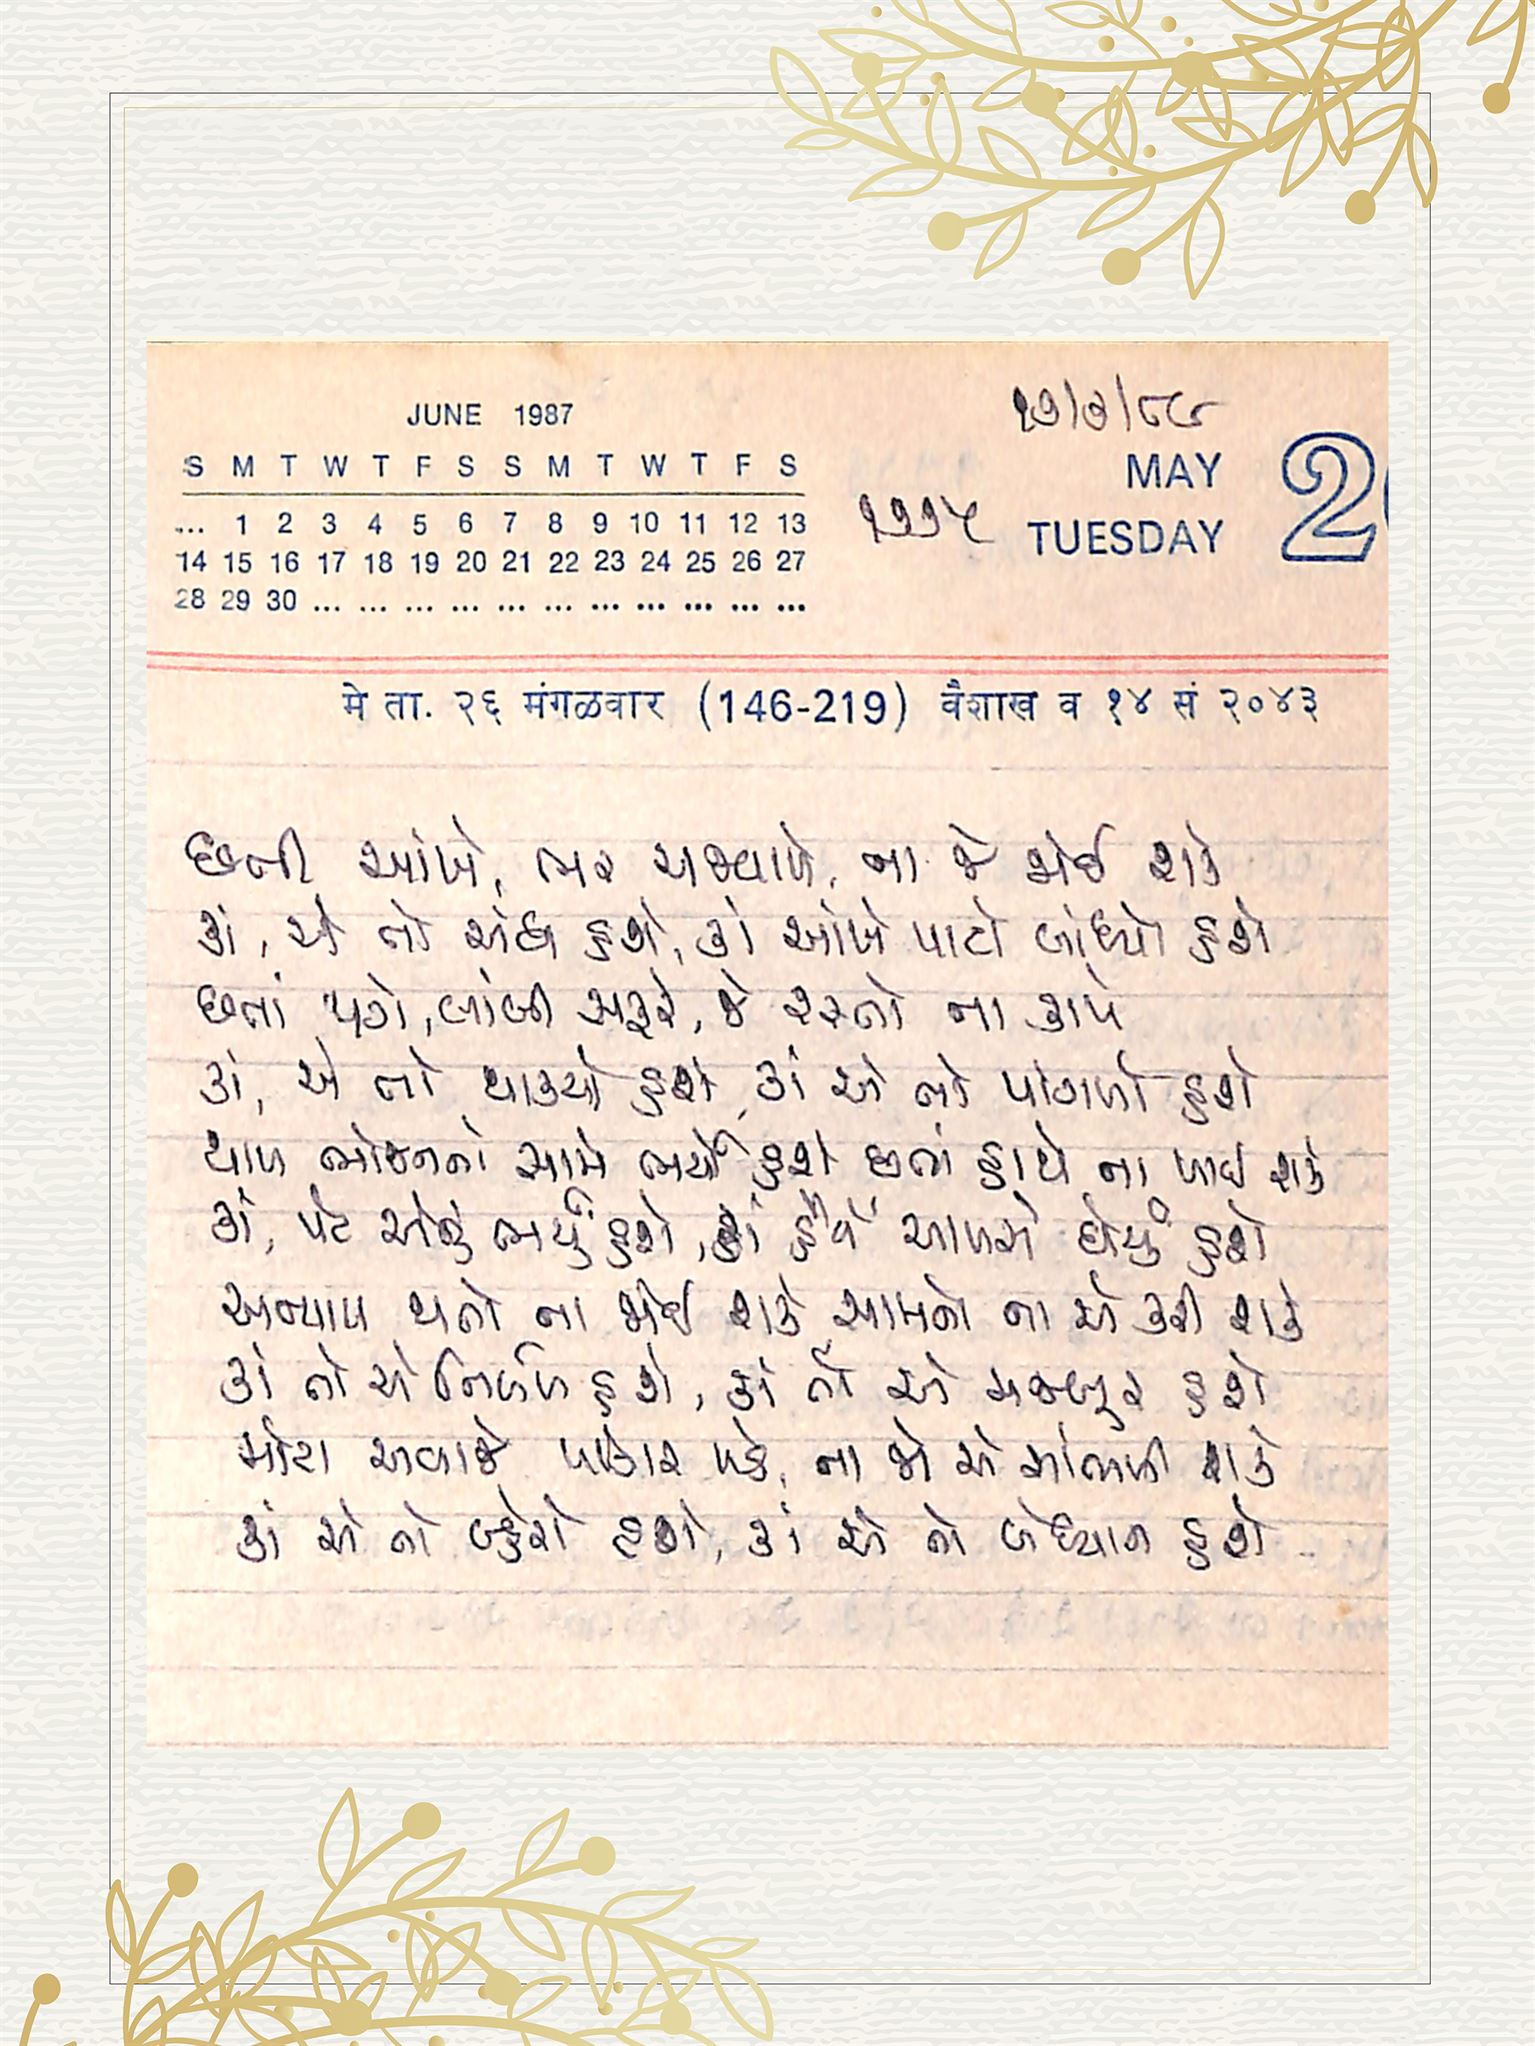 ૧૭/૭/૮૮
JUNE 1987
MAY
26
S M T W T F S S M T W T F S
૧૧૧૫
TUESDAY
... 1 2 3 4 5 6 7 8 9 10 11 12 13
14 15 16 17 18 19 20 21 22 23 24 25 26 27
28 29 30 ... ... ... ... ... ... ... ... ... ... ...
मे ता. २६ मंगळवार (146-219) वैशाख व १४ सं २०४३
છતી આંખે, ભર અજવાળે, ના જે જોઈ શકે
કાં, એ તો અંધ હશે, કાં આંખે પાટો બાંધ્યો હશે
છતાં પગે, લાંબી સફરે, જે રસ્તો ના કાપે
કાં, એ તો થાક્યો હશે, કાં એ તો પાંગળો હશે
થાળ ભોજનનો સામે ભર્યો હશે છતાં હાથે ના ખાઈ શકે
કાં, પેટ એનું ભર્યું હશે, કાં હૈયે આળસે ઘેર્યું હશે
અન્યાય થતો ના જોઈ શકે સામનો ના એ કરી શકે
કાં તો એ નિર્બળ હશે, કાં તો એ મજબુર હશે
મોટા અવાજે પોકાર પડે, ના જો એ સાંભળી શકે
કાં એ તો બહેરો હશે, કાં એ તો બેધ્યાન હશે